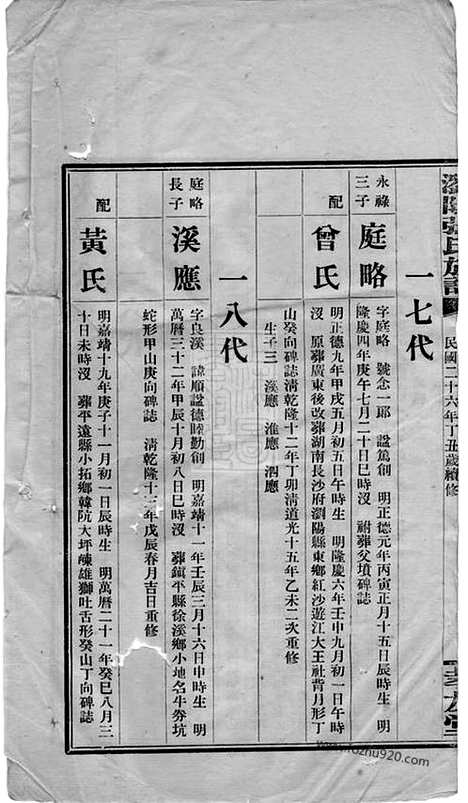 瀏陽張氏族譜
民國二十六年丁丑歲續修
一七代
永祿三子
庭略
字庭略 號念一郎 諡篤創 明正德元年丙寅正月十五日辰時生 明
隆慶四年庚午七月二十日巳時沒 祔葬父墳碑誌
配
曾氏
明正德九年甲戌五月初五日午時生 明隆慶六年壬申九月初一日午時
沒 原葬廣東後改葬湖南長沙府瀏陽縣東鄉紅沙遊江大王社背月形丁
山癸向碑誌清乾隆十二年丁卯清道光十五年乙未二次重修
生子三 溪應 淮應 泗應
一八代
庭略長子
溪應
字良溪 諱順諡德睦勤創 明嘉靖十一年壬辰三月十六日申時生 明
萬曆三十二年甲辰十月初八日巳時沒 葬鎮平縣徐溪鄉小地名牛劵坑
蛇形甲山庚向碑誌 清乾隆十三年戊辰春月吉日重修
配
黃氏
明嘉靖十九年庚子十一月初一日辰時生 明萬曆二十一年癸巳八月三
十日未時沒 葬平遠縣小拓鄉韓阬大坪雄獅吐舌形癸山丁向碑誌
www.fozhu920.com